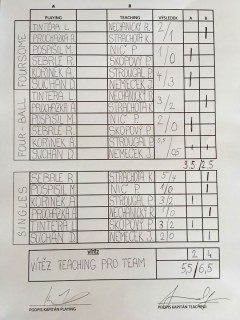 A B
PLAYING TEACHING VÝSLEDEK A B
FOURSOME
TINTĚRA L. NECHANICKÝ R. 2/1
PROCHÁZKA A. STRACHOTA K.
POSPÍŠIL M. NIČ P. 1/0
ŠEBRLE R. SKOPOVÝ P.
KOŘÍNEK A. STROUGAL P. 4/3
SUCHAN D. NĚMEČEK J.
FOUR - BALL
TINTĚRA L. NECHANICKÝ R. 3/2
PROCHÁZKA A. STRACHOTA K.
POSPÍŠIL M. NIČ P. 2/0
ŠEBRLE R. SKOPOVÝ P.
KOŘÍNEK A. STROUGAL P.
SUCHAN D. NĚMEČEK J.
3,5 2,5
SINGLES
ŠEBRLE R. STRACHOTA K. 5/4
POSPÍŠIL M. NIČ P. 1/0
KOŘÍNEK A. SKOPOVÝ P. 3/2
PROCHÁZKA A. NECHANICKÝ R. 1/0
TINTĚRA L. STROUGAL P. 3/2
SUCHAN D. NĚMEČEK J. 2/0
VÍTĚZ 2 4
VÍTĚZ TEACHING PRO TEAM 5,5/6,5
PODPIS KAPITÁN PLAYING PODPIS KAPITÁN TEACHING